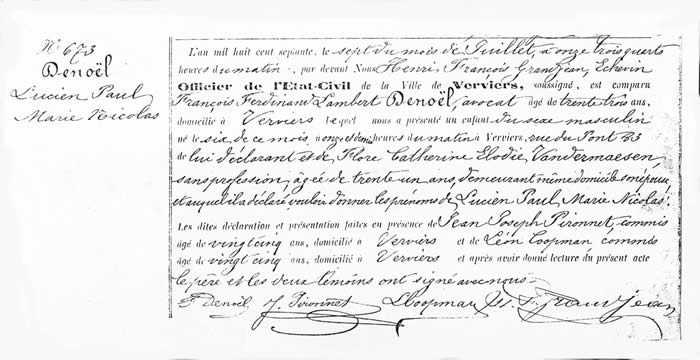 N° 673
Denoël
Lucien Paul
Marie Nicolas
L'an mil huit cent septante, le sept du mois de Juillet, à onze trois quarts
heures du matin, par devant Nous Henri, François Grandjean, Echevin
Officier de l'Etat-Civil de la Ville de Verviers, soussigné, est comparu
François Ferdinand Lambert Denoël, avocat âgé de trente trois ans,
domicilié à Verviers lequel nous a présenté un enfant du sexe masculin
né le six de ce mois à onze et demie heures du matin à Verviers, rue du Pont 33
de lui déclarant et de Flore Catherine Elodie Vandermaesen,
sans profession, âgée de trente un ans, demeurant même domicile son épouse
et auquel il a déclaré vouloir donner les prénoms de Lucien Paul Marie Nicolas.
Les dites déclaration et présentation faites en présence de Jean Joseph Pironnet, commis
âgé de vingt cinq ans, domicilié à Verviers et de Léon Coopman commis
âgé de vingt cinq ans, domicilié à Verviers et après avoir donné lecture du présent acte
le père et les deux témoins ont signé avec nous.
F Denoël J. Pironnet L Coopman H. F. Grandjean